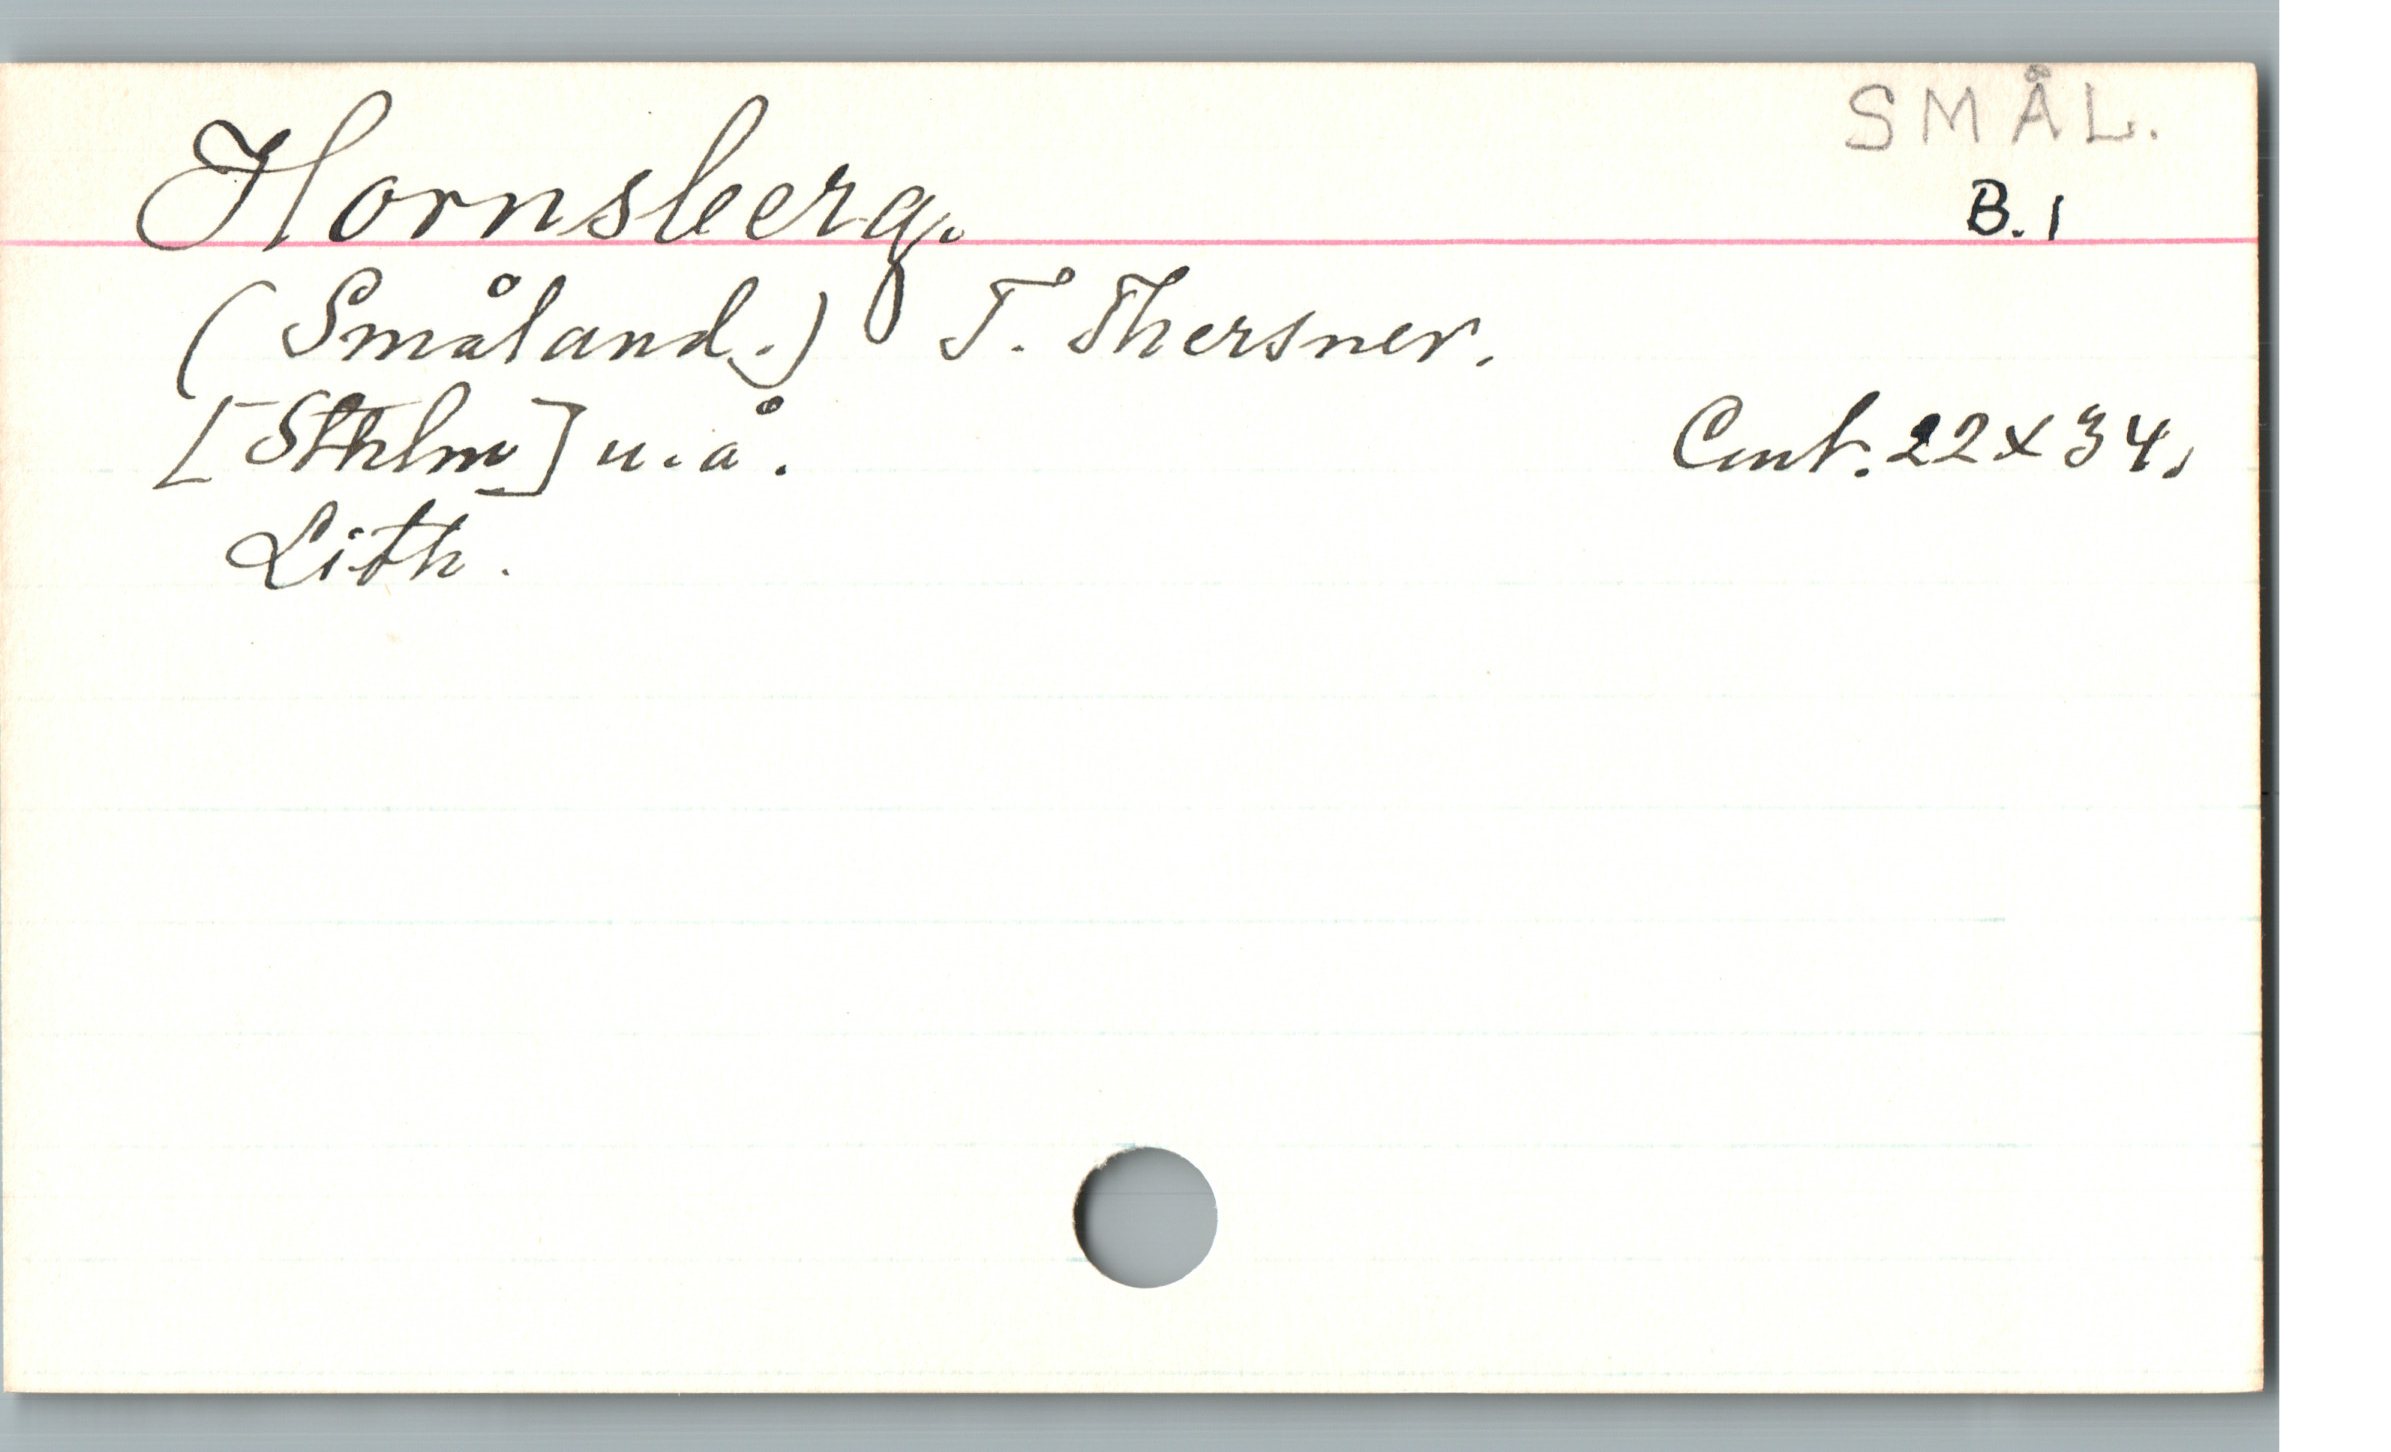 SMÅL.
Hornsberg.
B. 1
(Småland.) T. Thersner.
[Sthlm] u. å.
Cent. 22x34.
Lith.